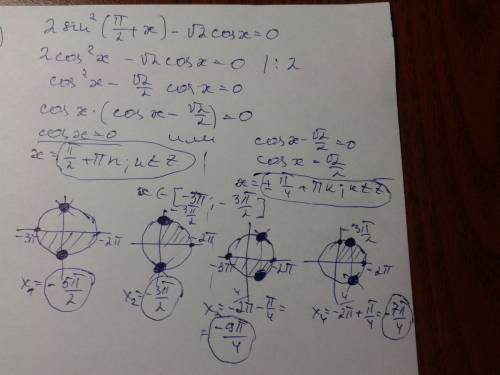 )
2 sin² (π/2 + x) - √2 cosx = 0
2cos²x - √2 cosx = 0 | : 2
cos²x - √2/2 cosx = 0
cosx · (cosx - √2/2) = 0
cosx = 0 или cosx - √2/2 = 0
cosx = √2/2
x = π/2 + πn; n ∈ Z | x = ± π/4 + πk; k ∈ Z
x ∈ [-3π; -3π/2]
-3π -2π
-3π/2 -2π
-3π -2π
3π/2 -2π
x₁ = -5π/2
x₂ = -3π/2
x₃ = -2π - π/4 =
= -9π/4
x₄ = -2π + π/4 = -7π/4